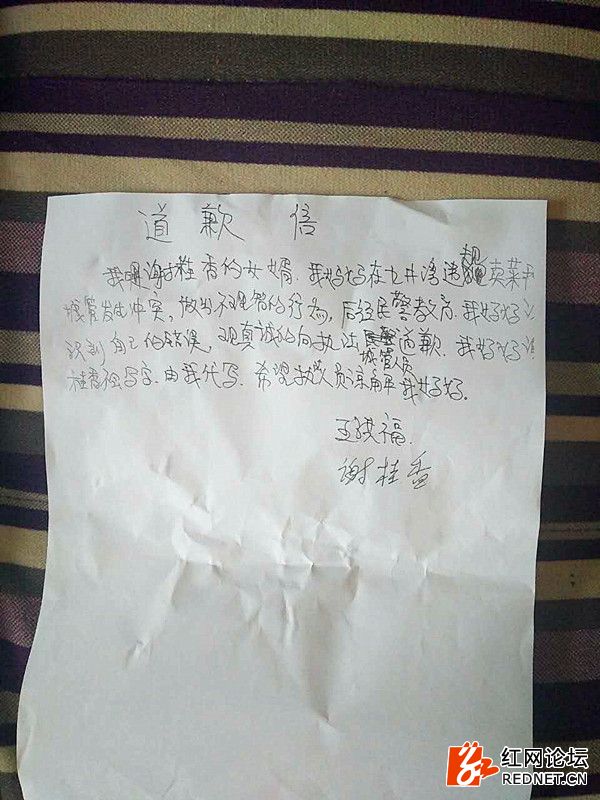 道歉信
我是谢桂香的女婿.我妈妈在七井湾违规卖菜和
城管发生冲突,做出不理智的行为,后经民警教育.我妈妈认
识到自己的错误,现真诚的向执法城管人员道歉.我妈妈谢
桂香不会写字.由我代写.希望执法人员谅解我妈妈.
王洪福.
谢桂香
红网论坛
REDNET.CN